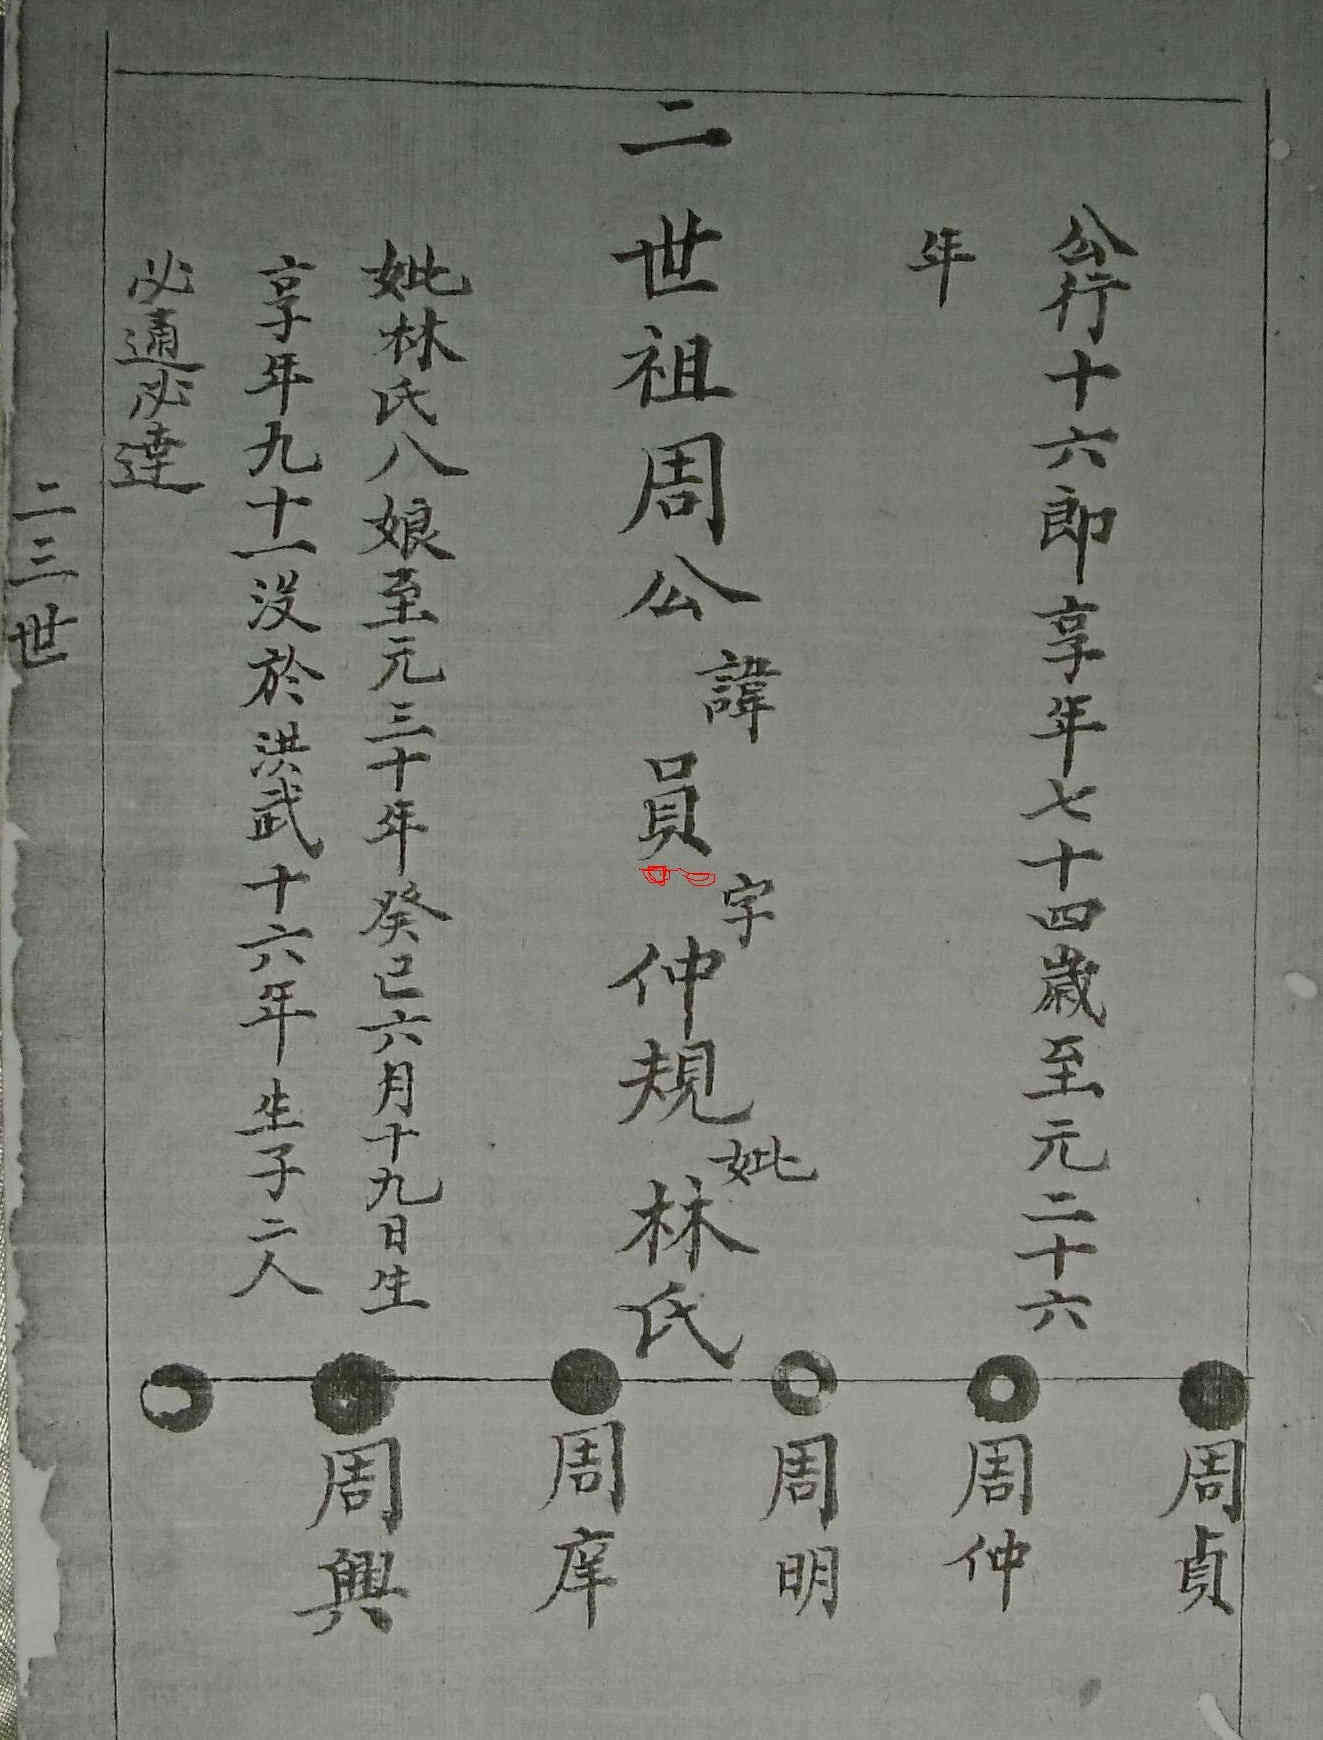 公行十六郎享年七十四歲至元二十六
年
二世祖周公諱員字仲規妣林氏
妣林氏八娘至元三十年癸巳六月十九日生
享年九十一沒於洪武十六年生子二人
必通必達
二三世
周貞
周仲
周明
周庠
周興